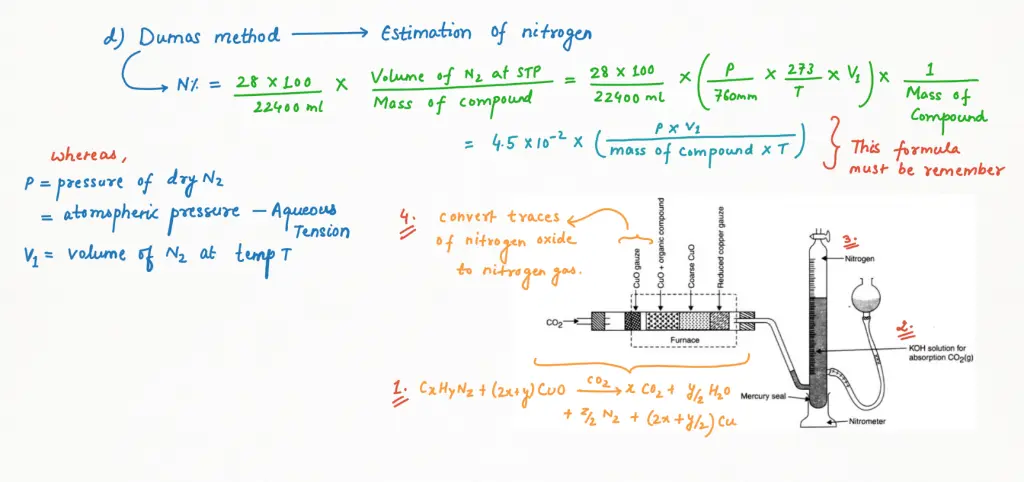 d) Dumas method ⟶ Estimation of nitrogen
N% = 28 x 100 / 22400 ml x Volume of N2 at STP / Mass of compound = 28 x 100 / 22400 ml x (P / 760mm x 273 / T x V1) x 1 / Mass of Compound
= 4.5 x 10^-2 x (P x V1 / mass of compound x T) } This formula must be remember
whereas,
P = pressure of dry N2
= atomspheric pressure - Aqueous Tension
V1 = volume of N2 at temp T
4. convert traces
of nitrogen oxide
to nitrogen gas.
CuO gauze
CuO + organic compound
Coarse CuO
Reduced copper gauze
CO2
Furnace
3.
Nitrogen
2.
KOH solution for
absorption CO2(g)
Mercury seal
Nitrometer
1. CxHyNz + (2x+y) CuO CO2→ x CO2 + y/2 H2O
+ z/2 N2 + (2x + y/2) Cu